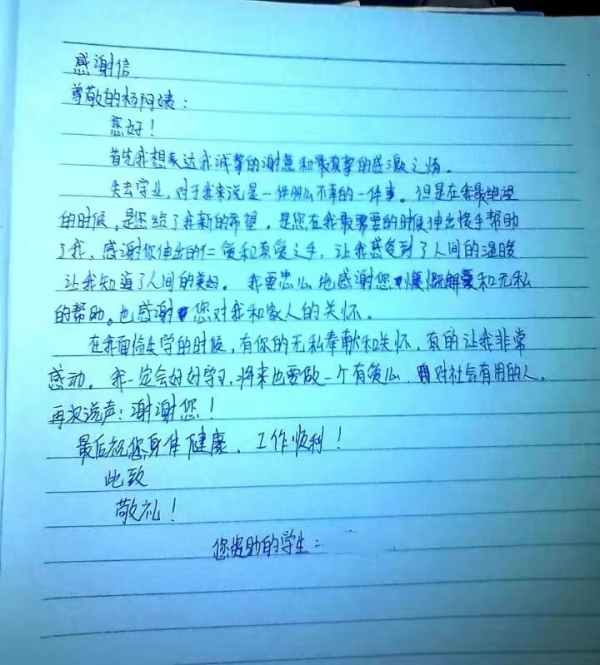 感谢信
尊敬的杨阿姨：
您好！
首先我想表达我诚挚的谢意和最真挚的感激之情。
失去学业，对于我来说是一件那么不幸的一件事。但是在我最绝望
的时候，是您给了我新的希望，是您在我最需要的时候伸出援手帮助
了我，感谢你伸出的仁爱和真爱之手，让我感受到了人间的温暖
让我知道了人间的美好。我要忠心地感谢您慷慨解囊和无私
的帮助。也感谢您对我和家人的关怀。
在我面临失学的时候，有你的无私奉献和关怀，真的让我非常
感动。我一定会好好学习，将来也要做一个有爱心，对社会有用的人。
再次说声：谢谢您！
最后祝您身体健康、工作顺利！
此致
敬礼！
您资助的学生：